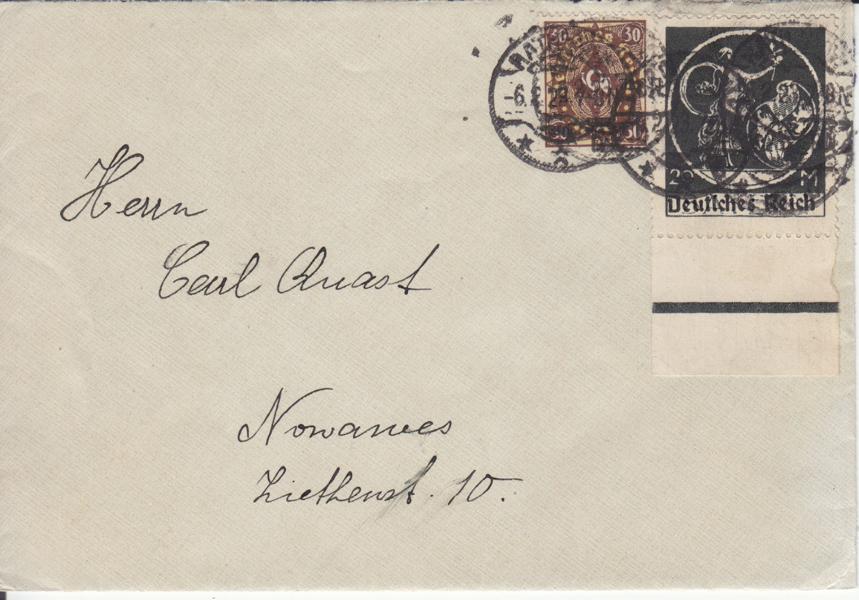 30 30
Deutsches Reich
6. 2. 23
20 M
Deutsches Reich
Herrn
Carl Quast
Nowawes
Ziethenst. 10.